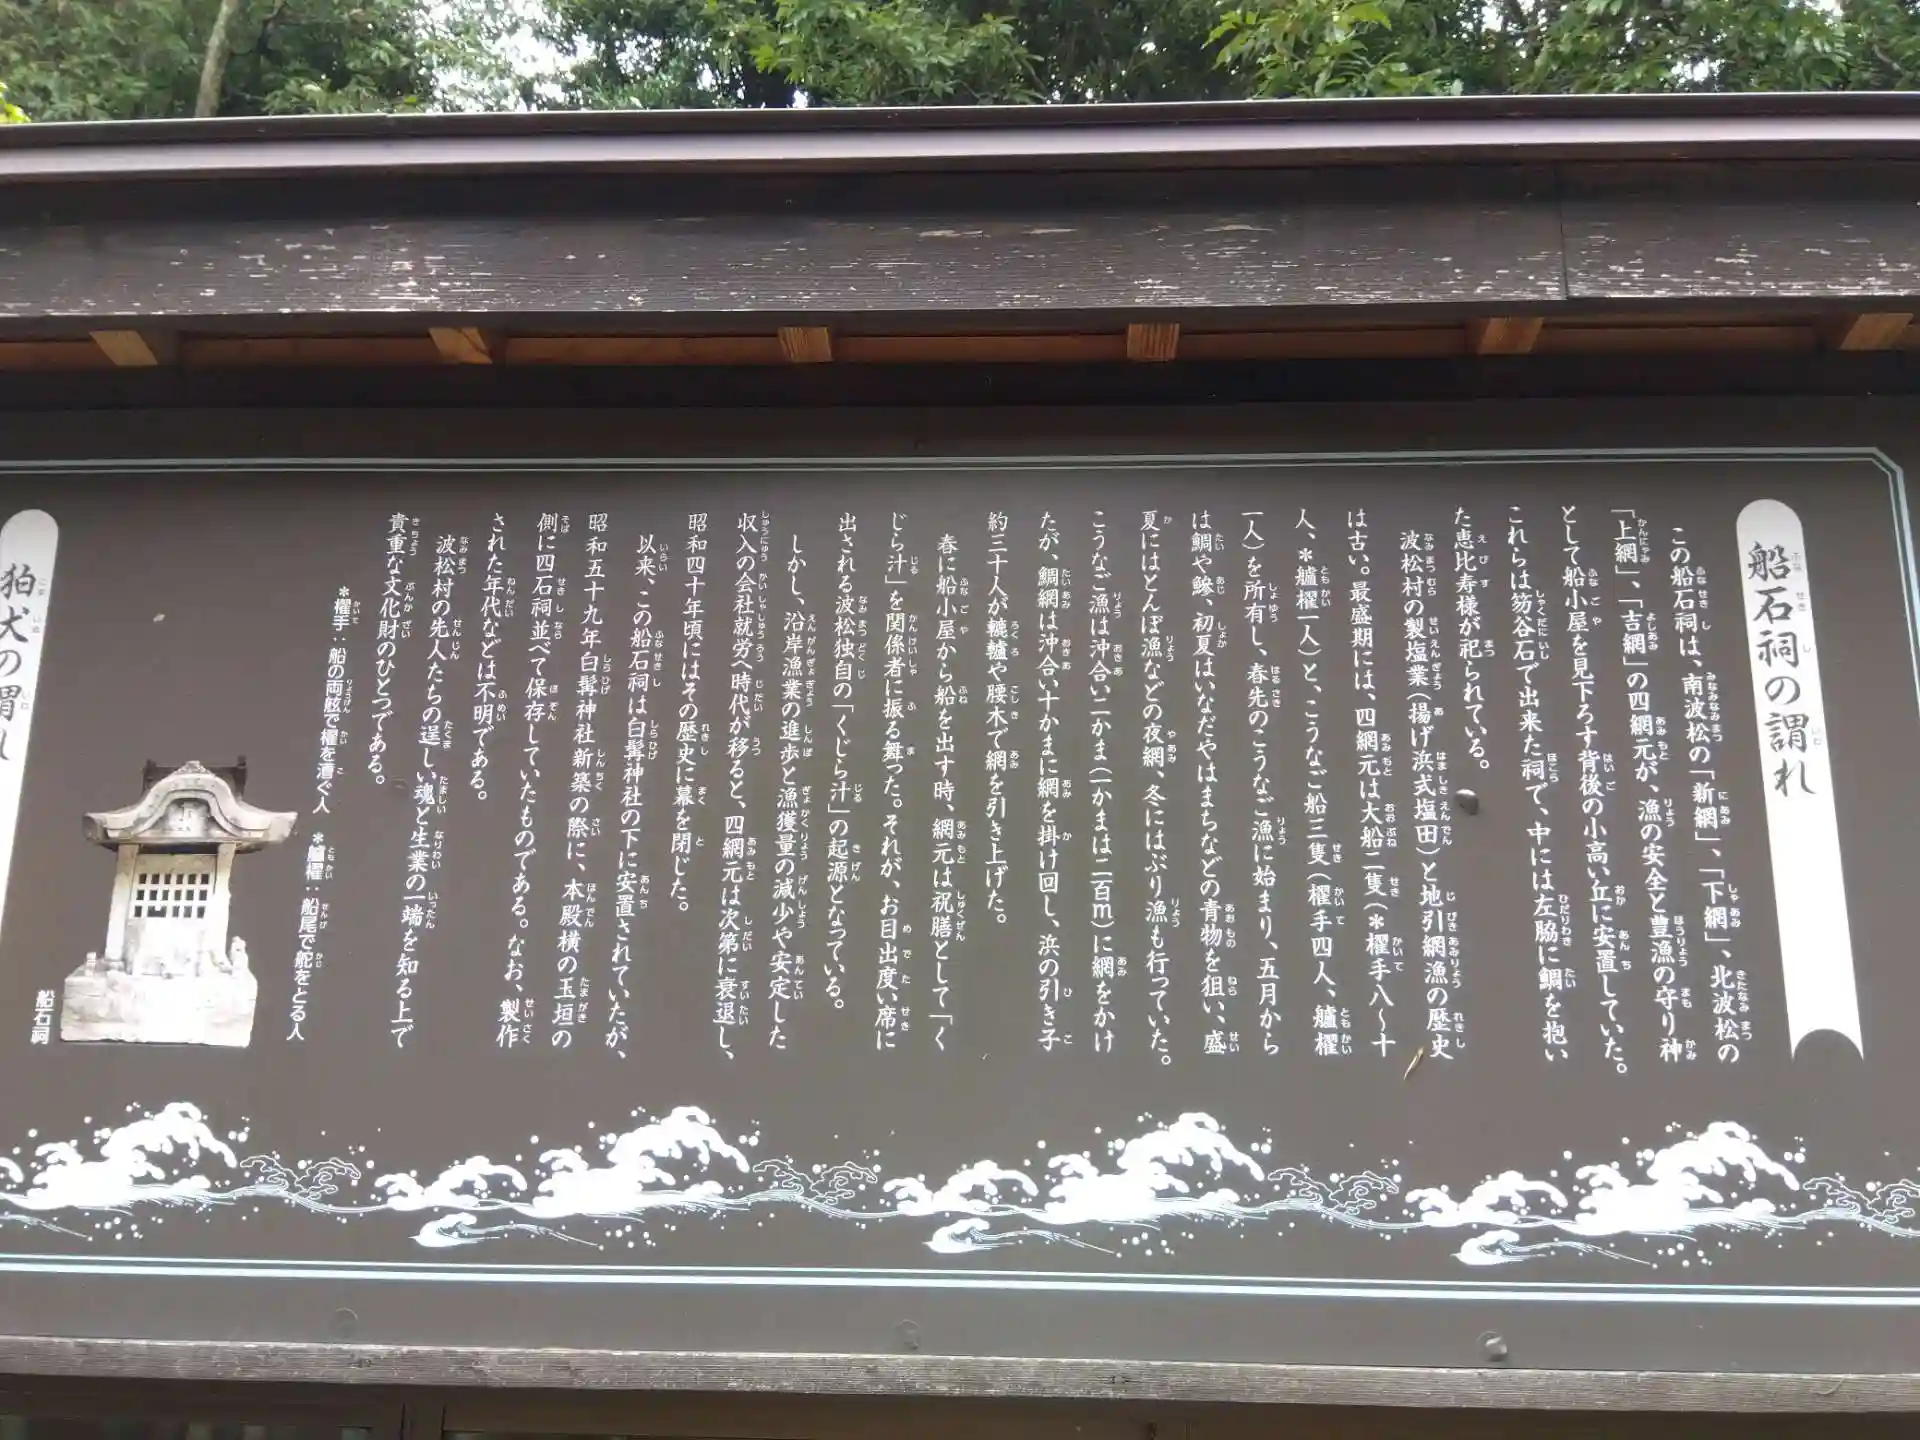 船石祠の謂れ
この船石祠は、南波松の「新網」、「下網」、北波松の
「上網」、「吉網」の四網元が、漁の安全と豊漁の守り神
として船小屋を見下ろす背後の小高い丘に安置していた。
これらは笏谷石で出来た祠で、中には左脇に鯛を抱い
た恵比寿様が祀られている。
波松村の製塩業(揚げ浜式塩田)と地引網漁の歴史
は古い。最盛期には、四網元は大船二隻(*櫂手八〜十
人、*艫櫂一人)と、こうなご船三隻(櫂手四人、艫櫂
一人)を所有し、春先のこうなご漁に始まり、五月から
は鯛や鰺、初夏はいなだやはまちなどの青物を狙い、盛
夏にはとんぼ漁などの夜網、冬にはぶり漁も行っていた。
こうなご漁は沖合い二かま(一かまは二百m)に網をかけ
たが、鯛網は沖合い十かまに網を掛け回し、浜の引き子
約三十人が轆轤や腰木で網を引き上げた。
春に船小屋から船を出す時、網元は祝膳として「く
じら汁」を関係者に振る舞った。それが、お目出度い席に
出される波松独自の「くじら汁」の起源となっている。
しかし、沿岸漁業の進歩と漁獲量の減少や安定した
収入の会社就労へ時代が移ると、四網元は次第に衰退し、
昭和四十年頃にはその歴史に幕を閉じた。
以来、この船石祠は白髯神社の下に安置されていたが、
昭和五十九年白髯神社新築の際に、本殿横の玉垣の
側に四石祠並べて保存していたものである。なお、製作
された年代などは不明である。
波松村の先人たちの逞しい魂と生業の一端を知る上で
貴重な文化財のひとつである。
*櫂手：船の両舷で櫂を漕ぐ人
*艫櫂：船尾で舵をとる人
船石祠
狛犬の謂れ